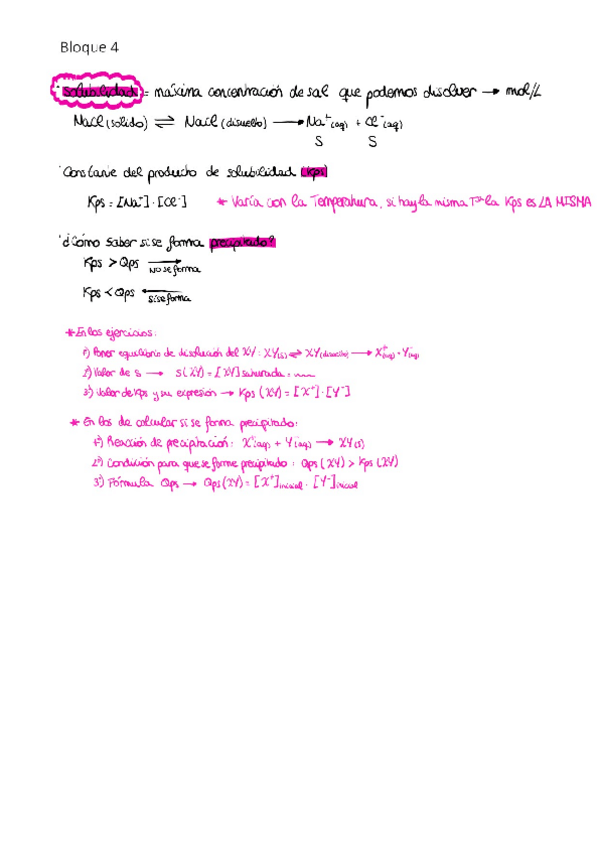 Bloque 4
· solubilidad = máxima concentración de sal que podemos disolver → mol/L
NaCl (solido) ⇌ NaCl (disuelto) → Na⁺(aq) + Cl⁻(aq)
S S
· Constante del producto de solubilidad (Kps)
Kps = [Na⁺] · [Cl⁻] * Varía con la Temperatura, si hay la misma Tª la Kps es LA MISMA
· ¿Cómo saber si se forma precipitado?
Kps > Qps → NO se forma
Kps < Qps ← Si se forma
* En los ejercicios:
1º) Poner equilibrio de disolución del XY: XY(s) ⇌ XY(disuelto) → X⁺(aq) + Y⁻(aq)
2º) Valor de s → s(XY) = [XY] saturada =
3º) Valor de Kps y su expresión → Kps (XY) = [X⁺] · [Y⁻]
* En los de calcular si se forma precipitado:
1º) Reacción de precipitación: X⁺(aq) + Y⁻(aq) → XY(s)
2º) Condición para que se forme precipitado: Qps (XY) > Kps (XY)
3º) Fórmula Qps → Qps (XY) = [X⁺]inicial · [Y⁻]inicial